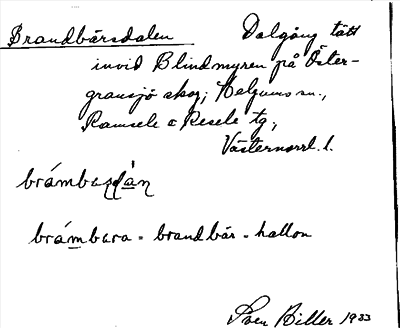 Brandbärsdalen Dalgång tätt
invid Blindmyren på Öster-
gransjö skog; Helgums sn.,
Ramsele o Resele tg,
Västernorrl. l.
brámbaɽdàn
brámbara = brandbär = hallon
Sven Biller 1933